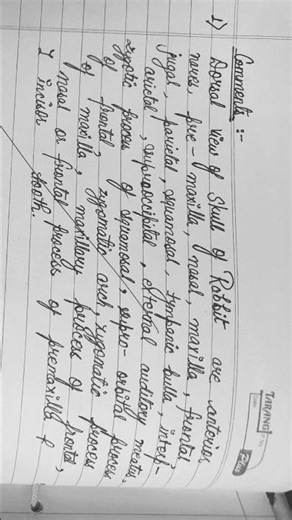 TARANG
Plus
Comments :-
1) Dorsal view of Skull of Rabbit are anterior
nares, pre-maxilla, nasal, maxilla, frontal
jugal, parietal, squamosal, tympanic bulla, interp-
arietal, supraoccipital, external auditory meatus,
zygotic process of squamosal, supra-orbital process
of frontal, zygomatic arch, zygomatic process
of maxilla, maxillary process of frontal,
nasal or frontal process of premaxilla &
incisor tooth.